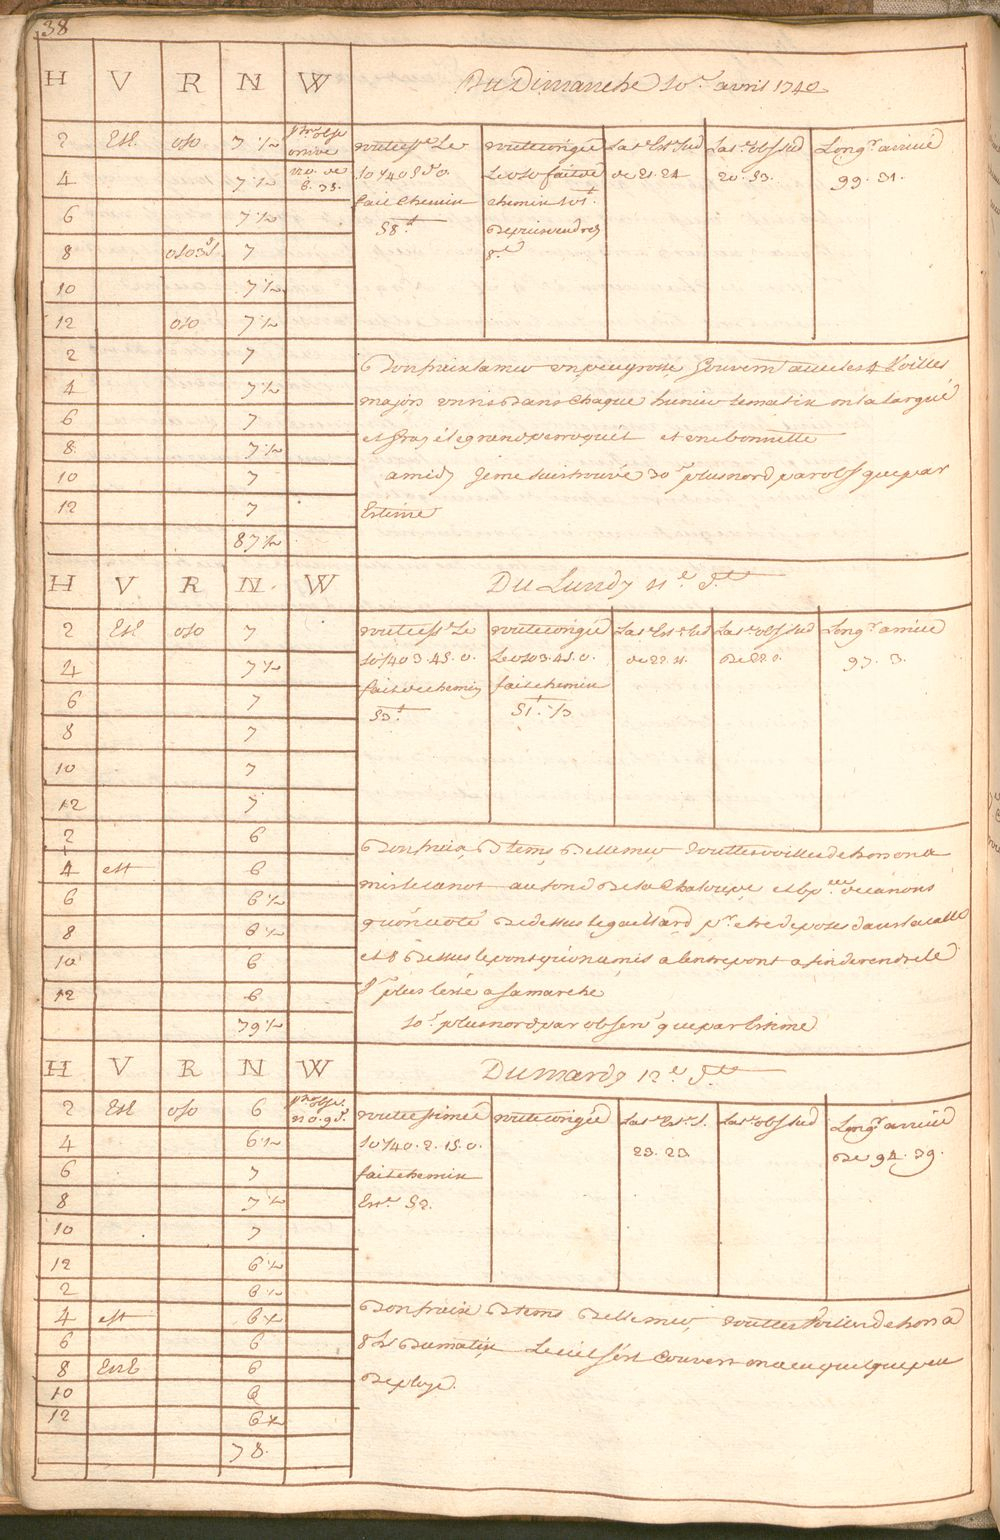 38
H V R N W Du Dimanche 10.e avril 1740
2 Est oso 7 1/2
4 7 1/2
6 7 1/2
8 oso 3 d s 7
10 7 1/2
12 oso 7 1/2
2 7
4 7 1/2
6 7
8 7 1/2
10 7
12 7
87 1/2
pr obse
ortive
n o de
6. 35.
route est.e Le
so 1/4 o 5 d o.
fait chemin
58.t
route corigée
Le oso fait de
chemin 101 t.
Depuis vendredy
8.e
Lat. Est. sud
de 21. 24
Lat. obs sud
20. 53.
Long.r arrivée
99. 31.
Bon frais la mer un peu grosse Gouvern.t avec les 4 voilles
major un ris dans chaque hunier le matin on la largué
et gréé le grand perroquet et une bonnette
a midy je me suis trouvé 30 plus nord par obs que par
Estime
H V R N W Du Lundy 11.e d.to
2 Est oso 7
4 7 1/2
6 7
8 7
10 7
12 7
2 6
4 est 6
6 6 1/2
8 6 1/2
10 6
12 6
79 1/2
route est.e Le
so 1/4 o 3. 45. o.
fait de chemin
53.t
route corigée
Le oso 3. 45. o.
fait chemin
51.t 1/3
Lat. Est. sud
de 22. 11.
Lat. obs sud
De 22.
Long.r arrivée
97. 3.
Bon frais B tems Belle mer toutes voilles dehors on a
mis le canot au fond de la chaloupe et 6 p.ces de canons
qu'on a oté De dessus le gaillard p.r etre deposes dans la calle
et 8 Dessus le pont qu'on a mis a l'entrepont afin de rendre le
V.x plus lesté a sa marche
10 plus nord par observ. que par Estime
H V R N W Du mardy 12.e d.to
2 Est oso 6
4 6 1/2
6 7
8 7 1/2
10 7
12 6 1/2
2 6 1/2
4 est 6 1/2
6 6
8 Ese 6
10 6
12 6 1/2
78.
pr obse.
n o. 9 d.
route estimée
so 1/4 o. 2. 15. o.
fait chemin
Est.e 52.
route corigée
Lat. Est. S.
23. 23
Lat. obs sud
Long.r arrivée
De 94. 39.
Bon frais B tems Belle mer toutes voilles dehors a
8 hs du matin Le ciel s'est couvert on a eu quelque peu
De pluye.